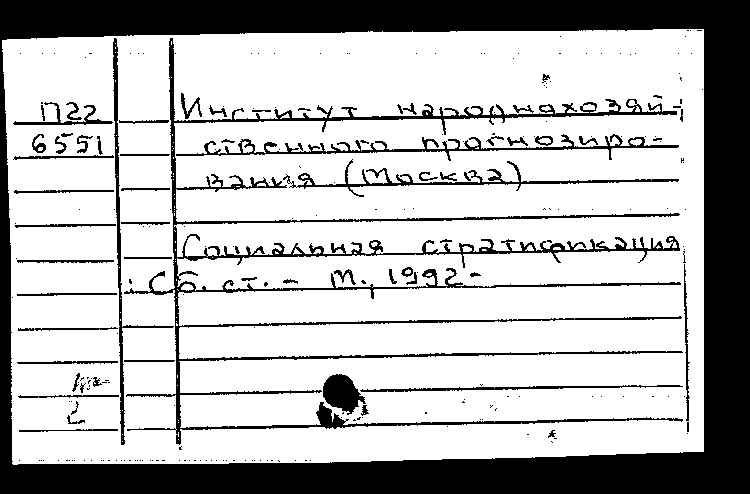 П22
6551
Институт народнахозяй-
ственного прогнозиро-
вания (Москва)
Социальная стратификация
: Сб. ст. - М., 1992-
2